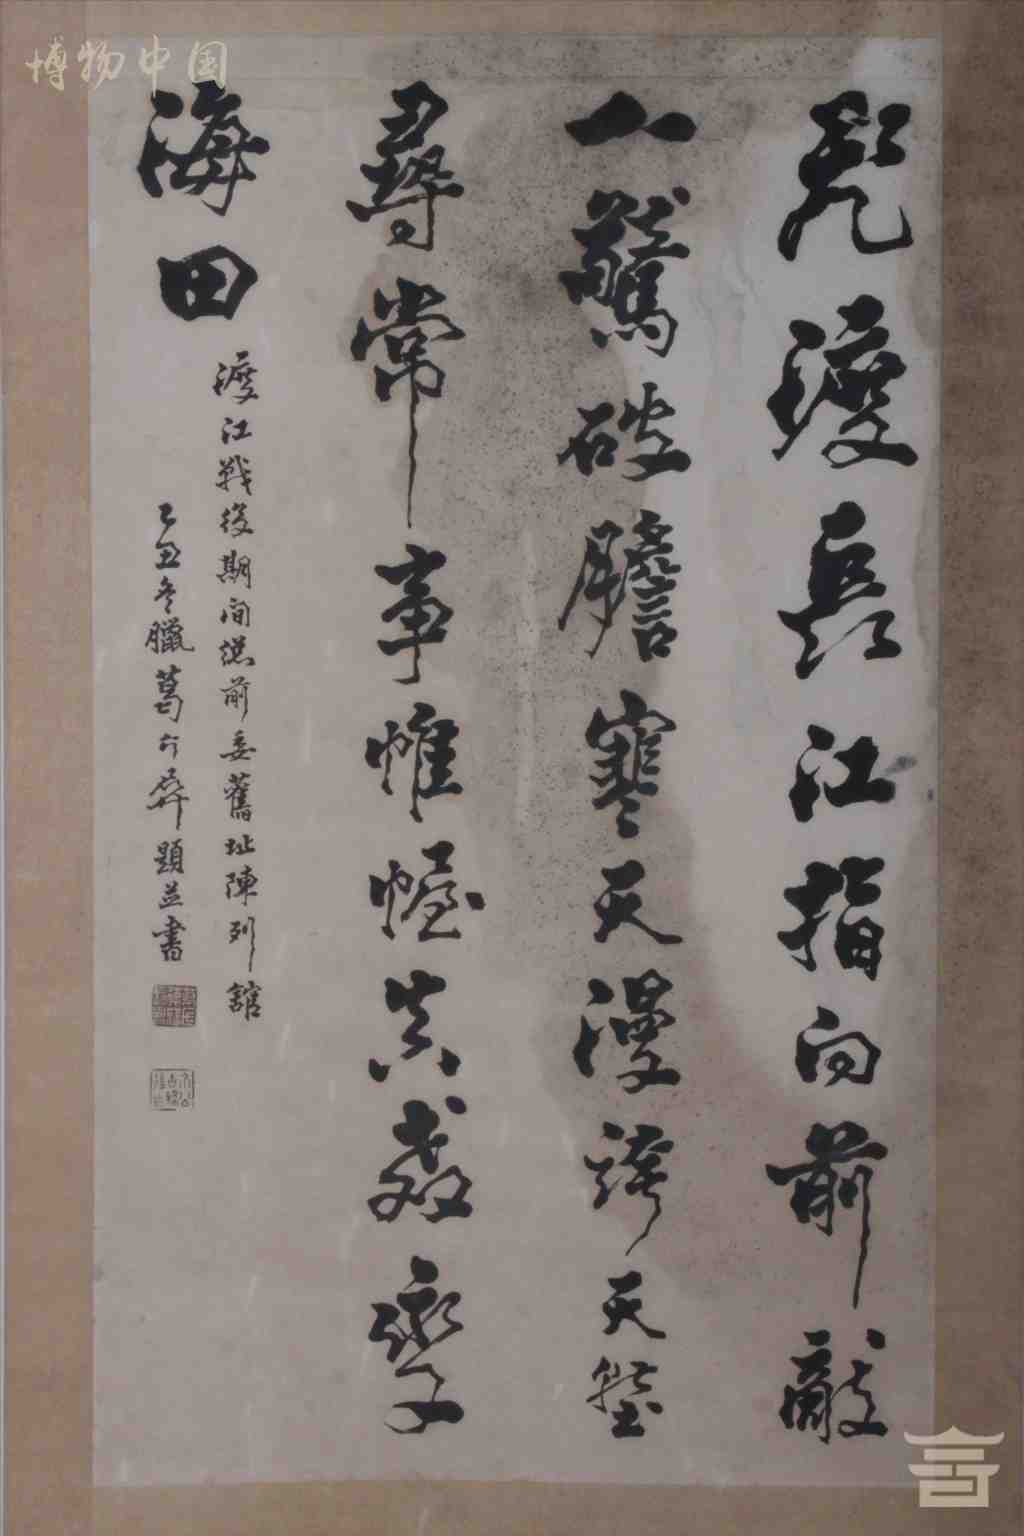 博物中国
飛渡長江指向前敵
人驚破膽寒天漫誇天塹
尋常事帷幄真教變
海田
渡江戰役期間總前委舊址陳列館
乙丑冬臘葛介屏題並書